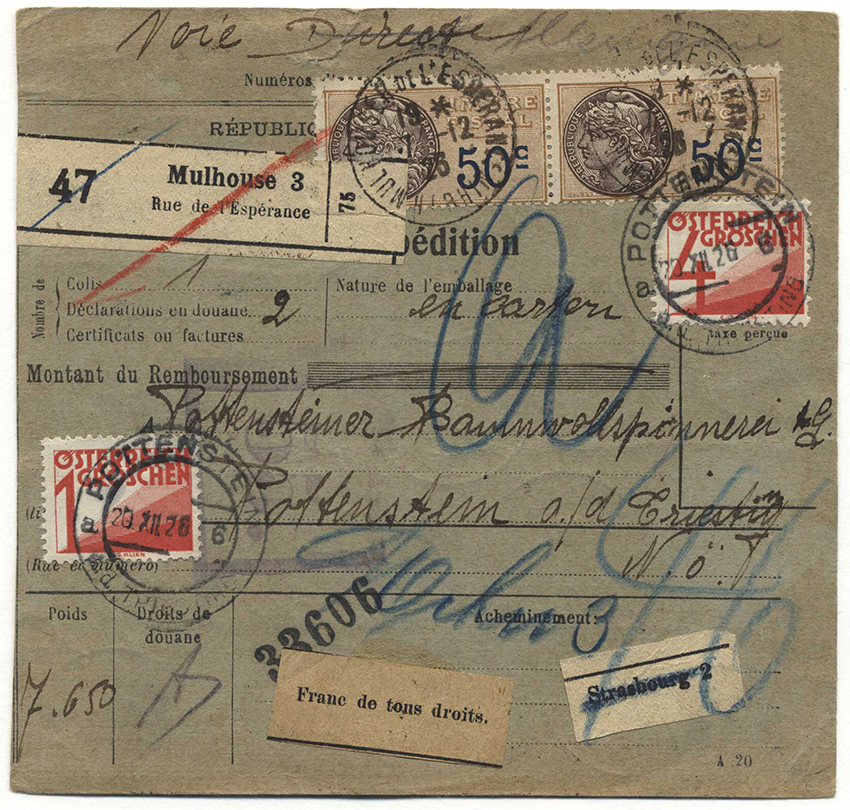 Voie Directe Allemagne
Numéros
RÉPUBLIQ
TIMBRE FISCAL
RÉPUBLIQUE FRANÇAISE
50c
MULHOUSE DE L'ESPERANCE
HT RHIN
50c
47
Mulhouse 3
Rue de l'Espérance
75
pédition
ÖSTERREICH
4 GROSCHEN
a POTTENSTEIN
20.XII.26 6
taxe perçue
Nombre de
Colis 1
Déclarations en douane 2
Certificats ou factures
Nature de l'emballage
en carton
Montant du Remboursement
Pottensteiner Baumwollspinnerei A.G.
Pottenstein a/d Triesting
N.Ö.
ÖSTERREICH
1 GROSCHEN
a POTTENSTEIN
20.XII.26 6
(Rue et numéro)
Poids
Droits de
douane
Acheminement:
7.650
33606
Franc de tous droits.
Strasbourg 2
A 20